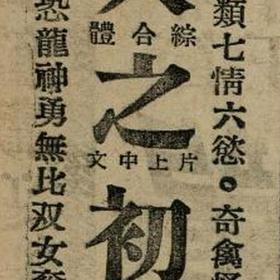 類七情六慾。奇禽怪
綜合體
之
片上中文
初
恐龍神勇無比双女